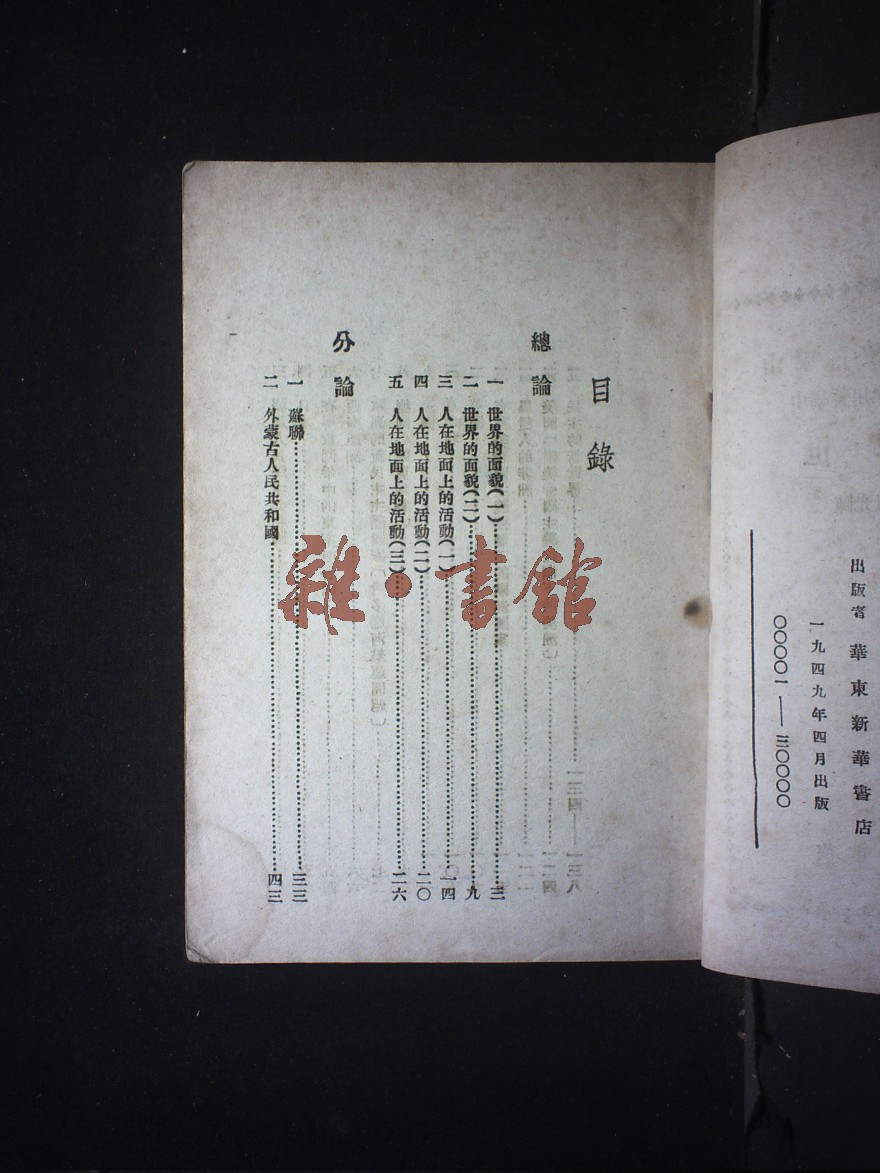 出版者 華東新華書店
一九四九年四月出版
〇〇〇〇一——三〇〇〇〇
目錄
總論
一 世界的面貌（一）……三
二 世界的面貌（二）……九
三 人在地面上的活動（一）……一四
四 人在地面上的活動（二）……二〇
五 人在地面上的活動（三）……二六
分論
一 蘇聯……三三
二 外蒙古人民共和國……四三
雜·書館